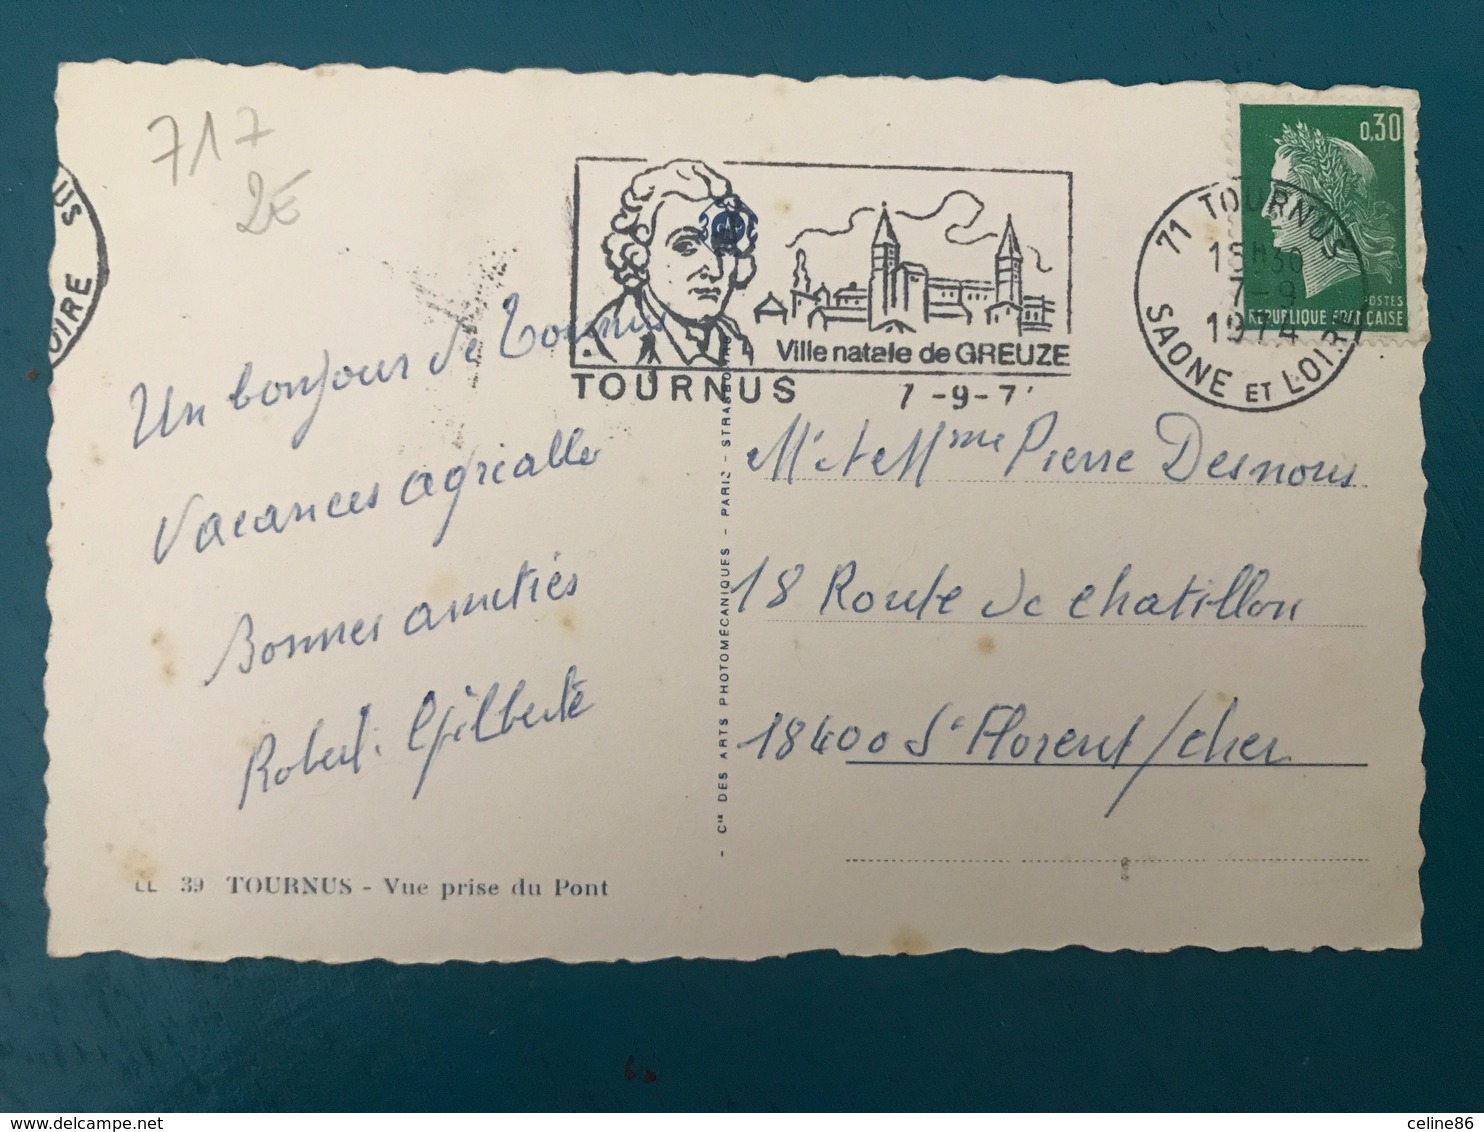 717
2E
US
OIRE
Ville natale de GREUZE
TOURNUS 7-9-7
71 TOURNUS
15H30
7-9
1974
SAONE ET LOIRE
0,30
POSTES
REPUBLIQUE FRANÇAISE
Un bonjour de Tournus
Vacances agréables
Bonnes amitiés
Robert. Gilberte
LL 39 TOURNUS - Vue prise du Pont
- Cie DES ARTS PHOTOMÉCANIQUES - PARIS - STRASBOURG
Mr et Mme Pierre Desnous
18 Route de chatillon
18400 St Florent/cher
delcampe.net
celine86